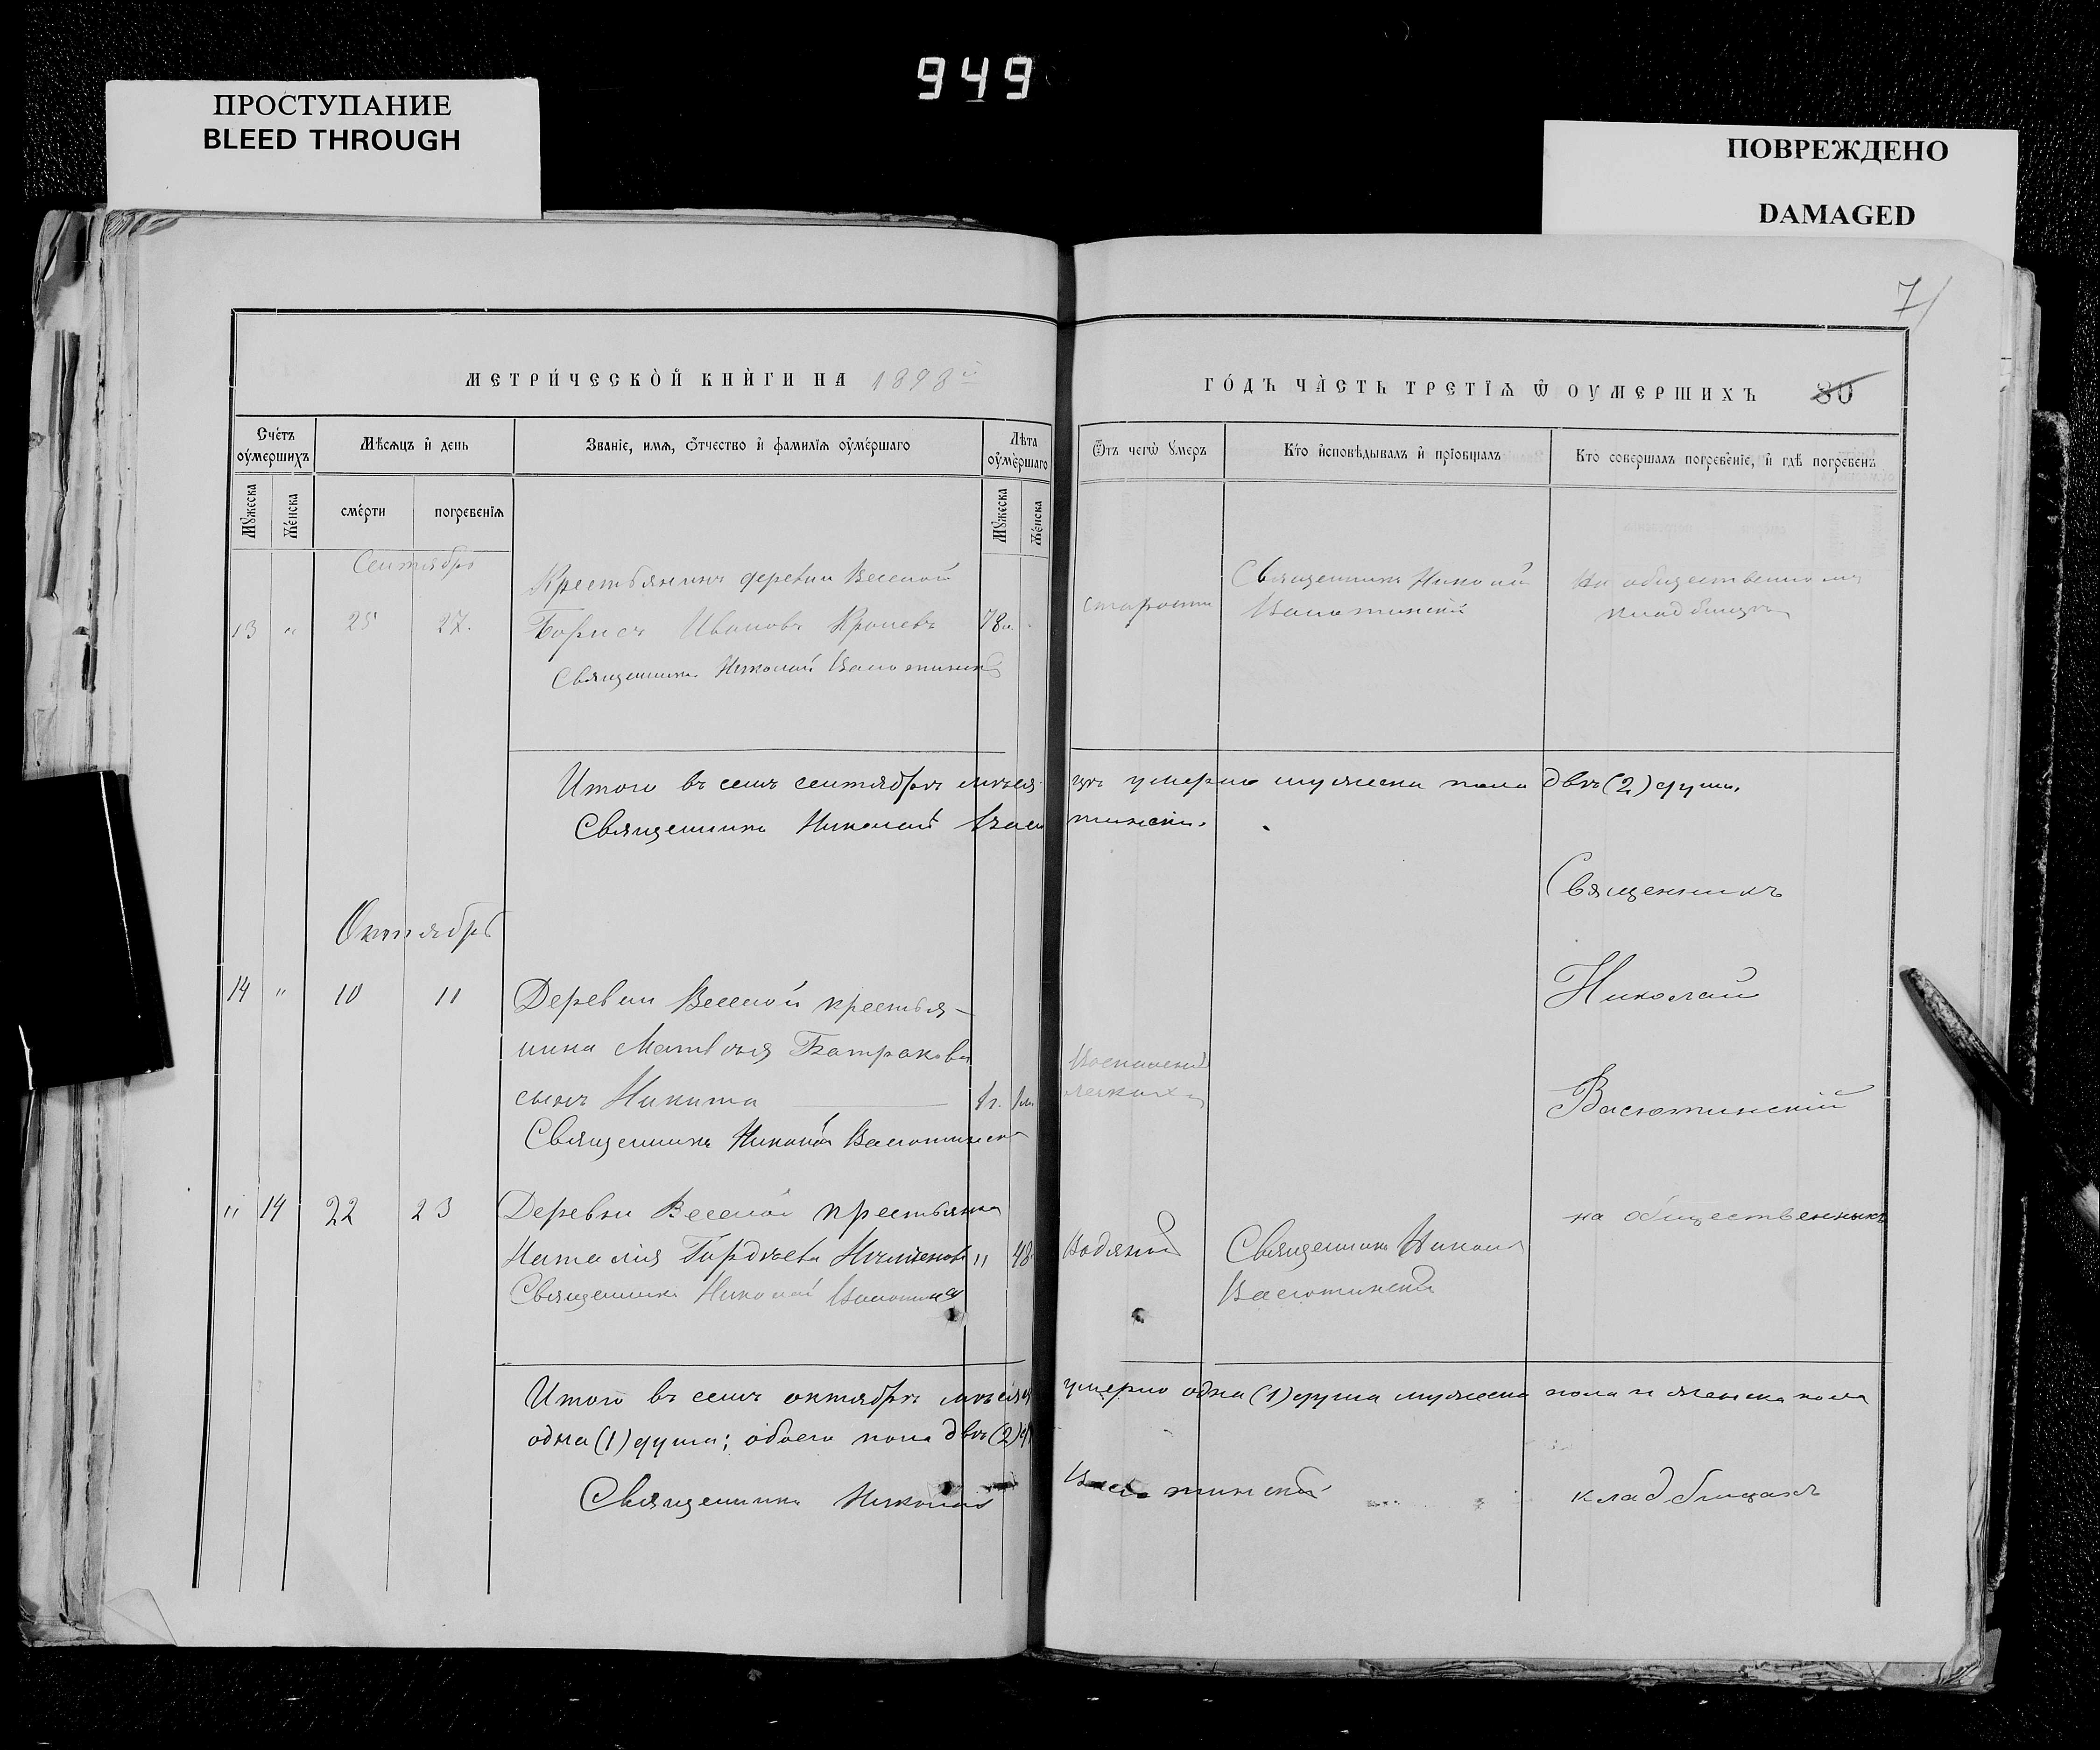 949
ПРОСТУПАНИЕ
BLEED THROUGH
ПОВРЕЖДЕНО
DAMAGED
71
МЕТРИ́ЧЕСКОЙ КНИ́ГИ НА 1898й
ГО́ДЪ ЧА́СТЬ ТРЕТІѦ Ѿ ОУМЕРШИХЪ 80
Сче́тъ оу҆ме́ршихъ
Мѣ́сѧцъ и҆ де́нь
Зва́нїе, и҆мѧ, ѻ҆́тчество и҆ фами́лїѧ оу҆ме́ршаго
Лѣ́та оу҆ме́ршаго
Ѿ чегѡ̀ у҆́меръ
Кто̀ и҆сповѣ́дывалъ и҆ прїѡбща́лъ
Кто̀ соверша́лъ погребе́нїе, и҆ гдѣ̀ погребе́нъ
Мꙋ́жеска
Же́нска
сме́рти
погребе́нїѧ
Мꙋ́жеска
Же́нска
Сентябрь
Крестьянинъ деревни Веселой
13 " 25 27. Борисъ Ивановъ 78л.
Священникъ Николай Васютинскій
старости
Священникъ Николай
Васютинскій
На общественномъ
кладбищѣ
Итого въ семъ сентябрѣ мѣсяцѣ умерло мужеска пола двѣ (2) души.
Священникъ Николай Васютинскій.
Октябрь
14 " 10 11 Деревни Веселой крестья-
нина Матвѣя Батракова
сынъ Никита 1г. 1м.
Священникъ Николай Васютинскій
Воспаленія
легкихъ
Священникъ
Николай
Васютинскій
" 14 22 23 Деревни Веселой крестьянка
Наталія Гордѣева " 48
Священникъ Николай Васютинскій
Водяной
Священникъ Николай
Васютинскій
на общественныхъ
Итого въ семъ октябрѣ мѣсяцѣ умерло одна (1) душа мужеска пола и женска пола
одна (1) душа; обоего пола двѣ (2) д
Священникъ Николай Васютинскій
кладбищахъ